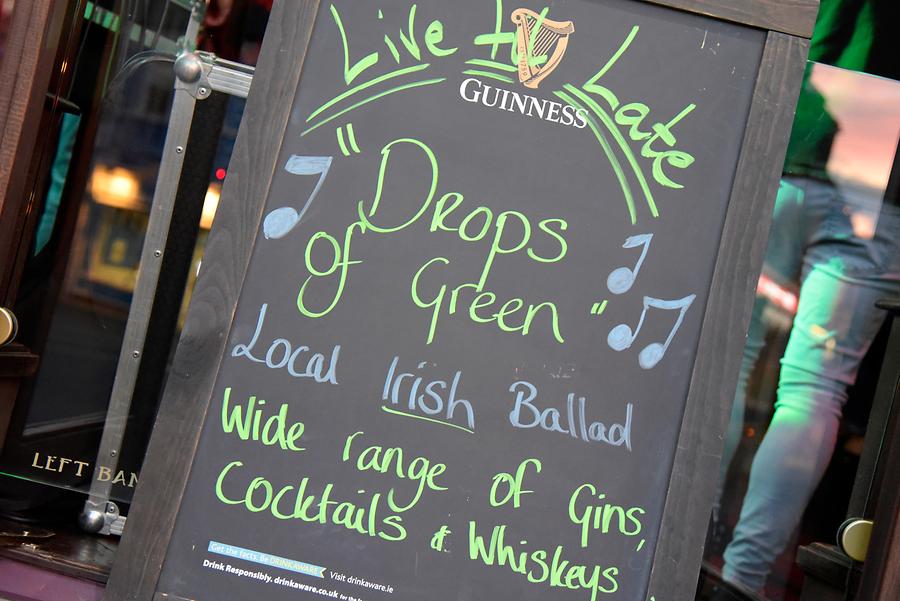 Live till Late
GUINNESS
"Drops
of Green"
Local Irish Ballad
Wide range of Gins,
Cocktails & Whiskeys
Get the facts. Be DRINKAWARE Visit drinkaware.ie
Drink Responsibly. drinkaware.co.uk for the
LEFT BAN